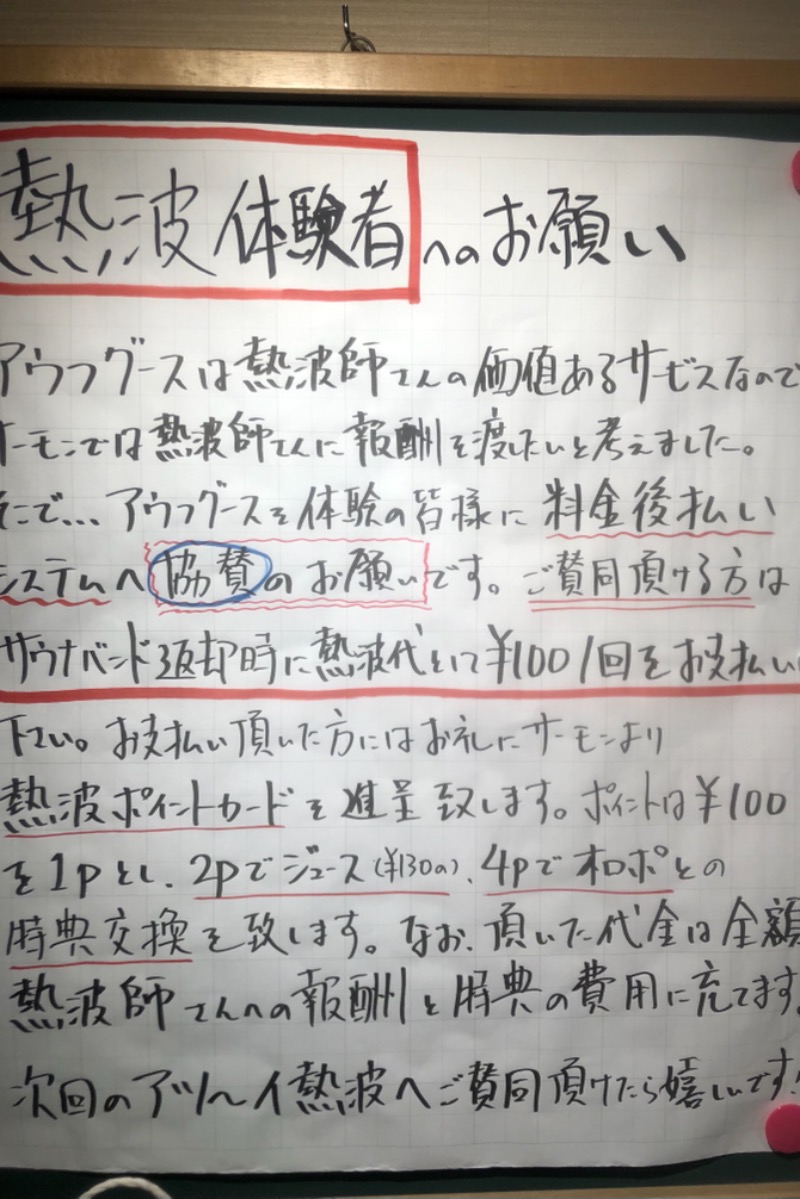 熱波体験者へのお願い
アウフグースは熱波師さんの価値あるサービスなので
サーモンでは熱波師さんに報酬を渡したいと考えました。
そこで...アウフグースを体験の皆様に料金後払い
システムへ協賛のお願いです。ご賛同頂ける方は
サウナバンド返却時に熱波代として¥100/1回をお支払い
下さい。お支払い頂いた方にはお礼にサーモンより
熱波ポイントカードを進呈致します。ポイントは¥100
を1pとし、2pでジュース(¥130の)、4pでオロポとの
特典交換を致します。なお、頂いた代金は全額
熱波師さんへの報酬と特典の費用に充てます。
次回のアツ〜イ熱波へご賛同頂けたら嬉しいです!